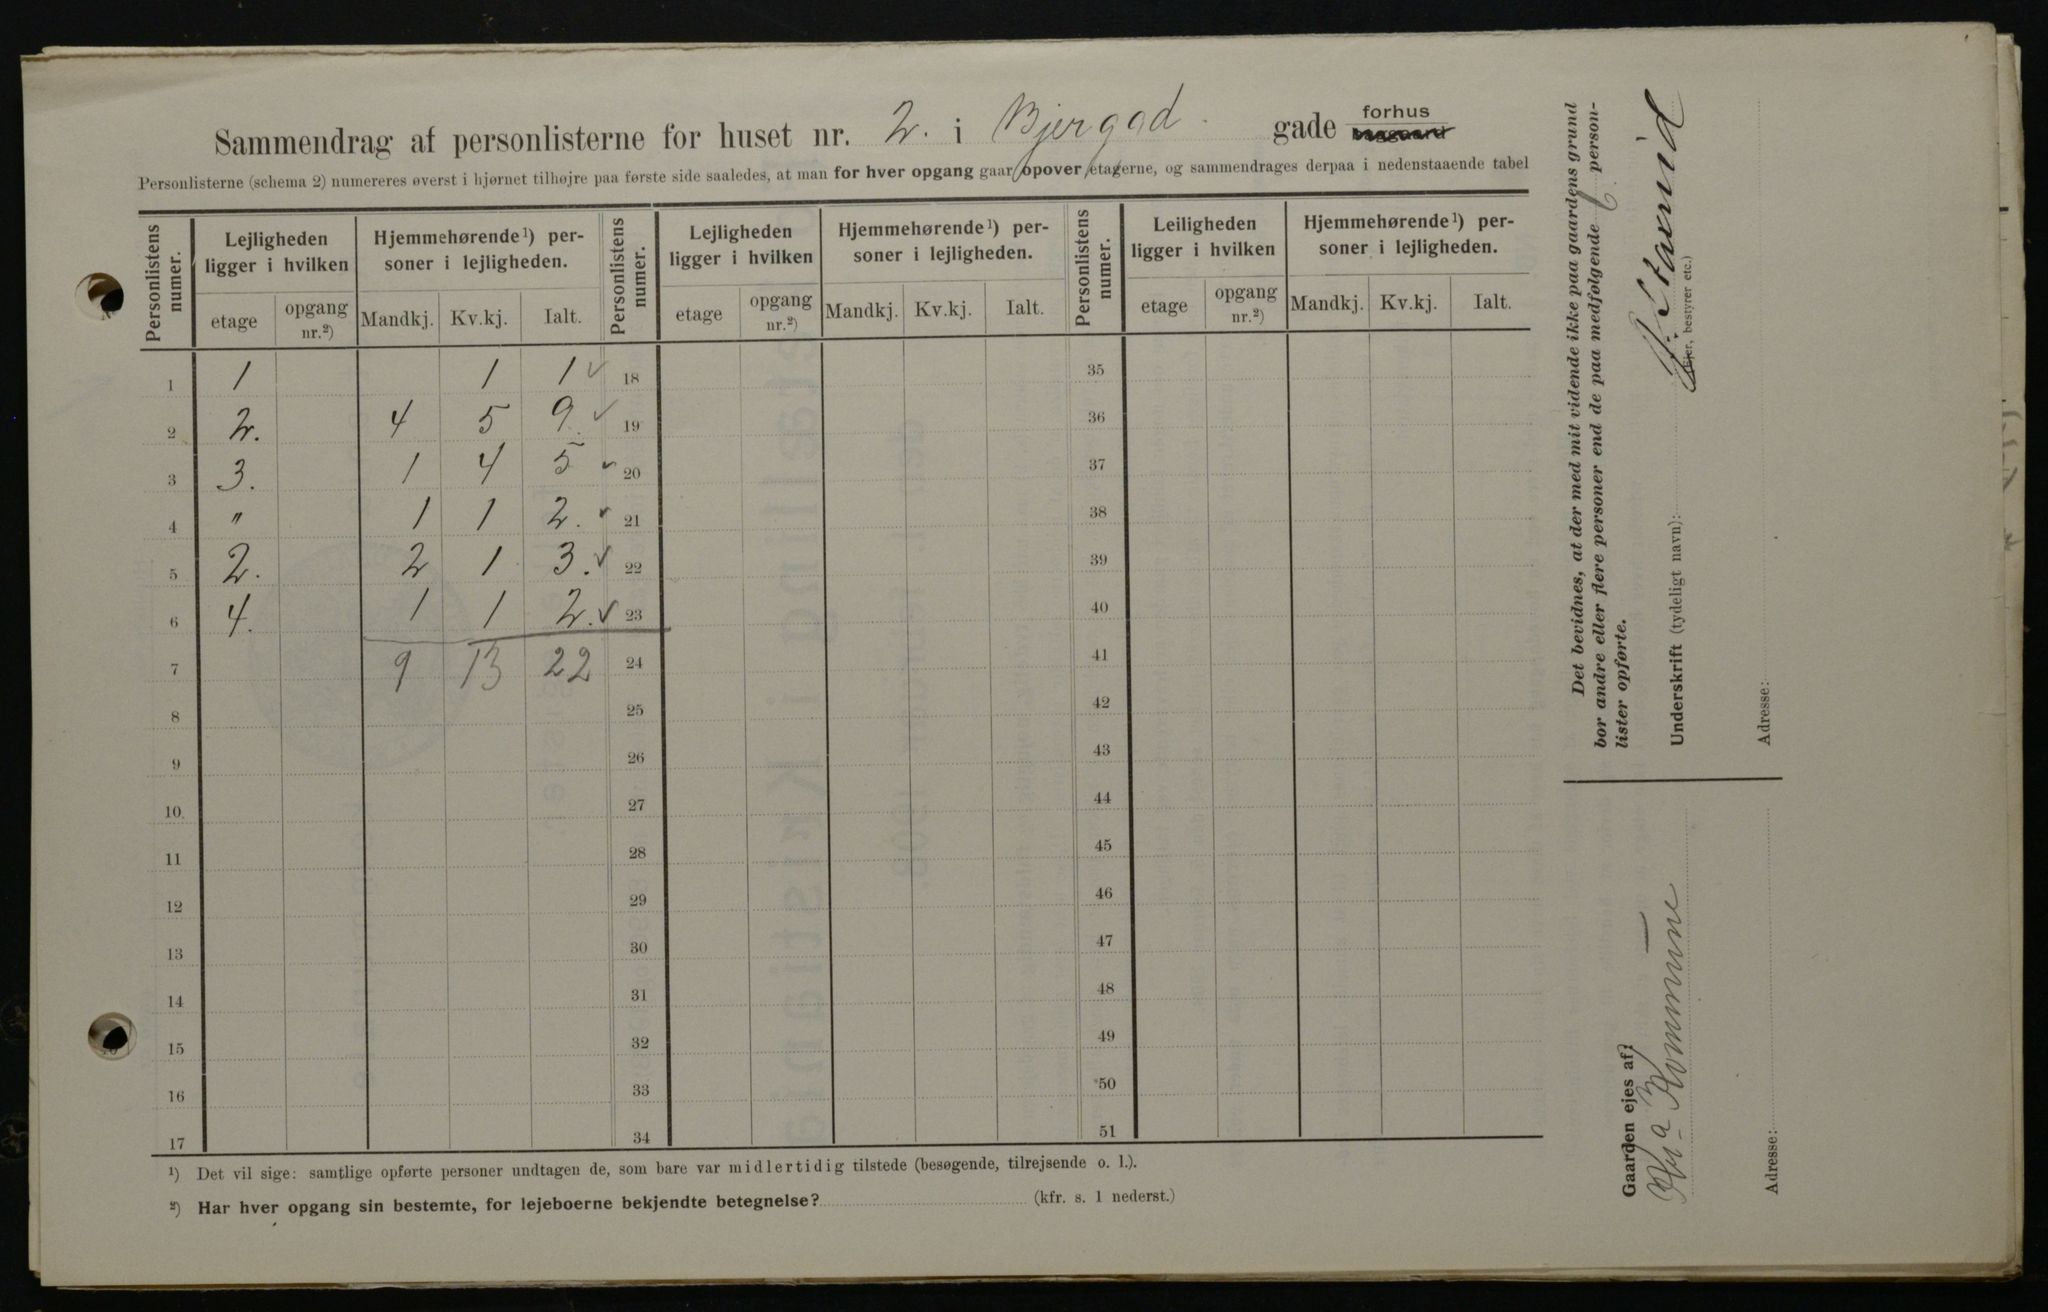 Sammendrag af personlisterne for huset nr. 2. i Bjergad gade forhus baggaard
Personlisterne (schema 2) numereres øverst i hjørnet tilhøjre paa første side saaledes, at man for hver opgang gaar opover etagerne, og sammendrages derpaa i nedenstaaende tabel
Personlistens numer. Lejligheden ligger i hvilken Hjemmehørende ¹) personer i lejligheden. Personlistens numer. Lejligheden ligger i hvilken Hjemmehørende ¹) personer i lejligheden. Personlistens numer. Leiligheden ligger i hvilken Hjemmehørende ¹) personer i lejligheden.
etage opgang nr.²) Mandkj. Kv.kj. Ialt. etage opgang nr.²) Mandkj. Kv.kj. Ialt. etage opgang nr.²) Mandkj. Kv.kj. Ialt.
1 1 1 1 ✓ 18 35
2 2. 4 5 9 ✓ 19 36
3 3. 1 4 5 ✓ 20 37
4 " 1 1 2. ✓ 21 38
5 2. 2 1 3. ✓ 22 39
6 4. 1 1 2. ✓ 23 40
7 9 13 22 24 41
8 25 42
9 26 43
10 27 44
11 28 45
12 29 46
13 30 47
14 31 48
15 32 49
16 33 50
17 34 51
¹) Det vil sige: samtlige opførte personer undtagen de, som bare var midlertidig tilstede (besøgende, tilrejsende o. l.).
²) Har hver opgang sin bestemte, for lejeboerne bekjendte betegnelse? (kfr. s. 1 nederst.)
Det bevidnes, at der med mit vidende ikke paa gaardens grund
bor andre eller flere personer end de paa medfølgende 6 person-
lister opførte.
Underskrift (tydeligt navn):
(Ejer, bestyrer etc.)
Adresse:
Gaarden ejes af:
Kr.a Kommune
Adresse: